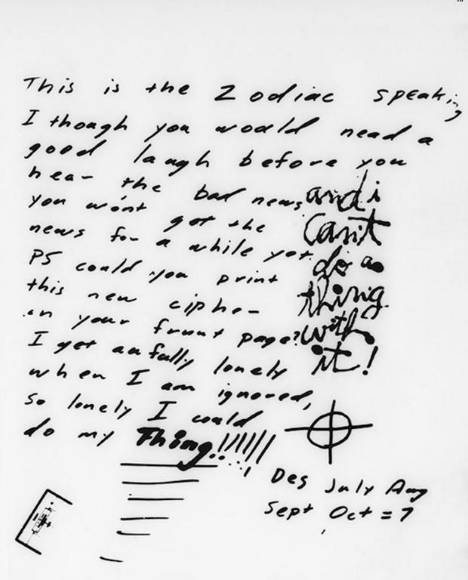 This is the Zodiac speaking
I though you would nead a
good laugh before you
hear the bad news
you won't get the
news for a while yet.
PS could you print
this new cipher
on your frunt page?
I get awfully lonely
when I am ignored,
so lonely I could
do my Thing!!!!!!
and i
can't
do a
thing
with
it!
Des July Aug
Sept Oct = 7